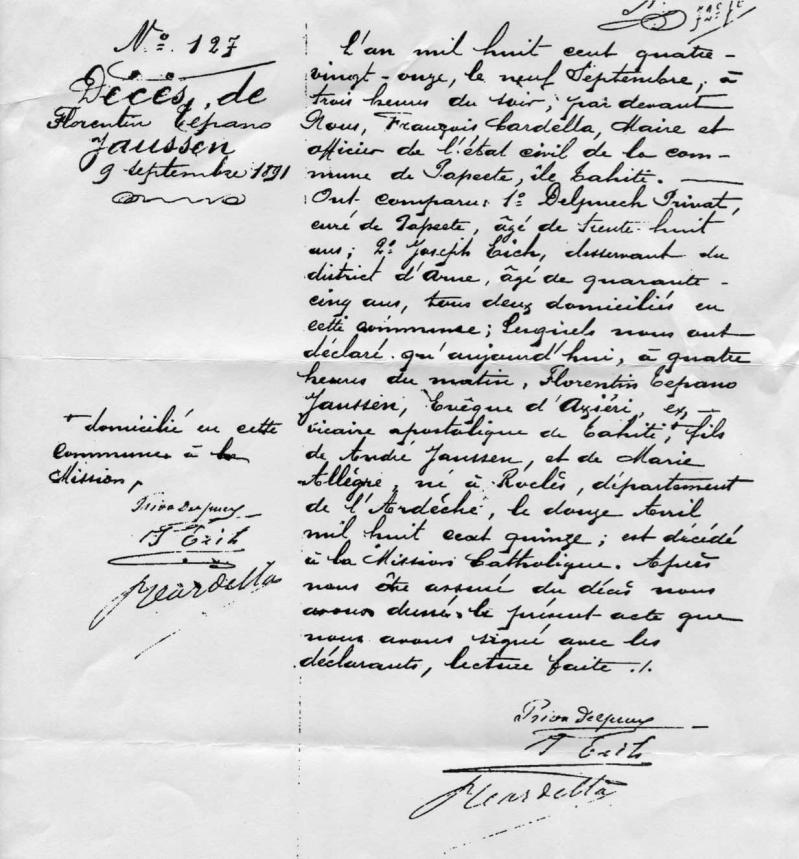 Nº. 127
Décès, de
Florentin Tepano
Jaussen
9 septembre 1891
L'an mil huit cent quatre-
vingt-onze, le neuf Septembre, à
trois heures du soir, par devant
Nous, François Cardella, Maire et
officier de l'état civil de la com-
mune de Papeete, île Tahiti. —
Ont comparu: 1º Delpuech Privat,
curé de Papeete, âgé de trente-huit
ans; 2º Joseph Eich, desservant du
district d'Arue, âgé de quarante-
cinq ans, tous deux domiciliés en
cette commune; Lesquels nous ont
déclaré qu'aujourd'hui, à quatre
heures du matin, Florentin Tepano
Jaussen, Evêque d'Axiéri, ex-
vicaire apostolique de Tahiti,+ fils
de André Jaussen, et de Marie
Allègre, né à Roclès, département
de l'Ardèche, le douze Avril
mil huit cent quinze; est décédé
à la Mission Catholique. Après
nous être assuré du décès nous
avons dressé le présent acte que
nous avons signé avec les
déclarants, lecture faite ./.
+ domicilié en cette
Commune à la
Mission,
Priva Delpuech
J Eich
F Cardella
Priva Delpuech
J Eich
F Cardella